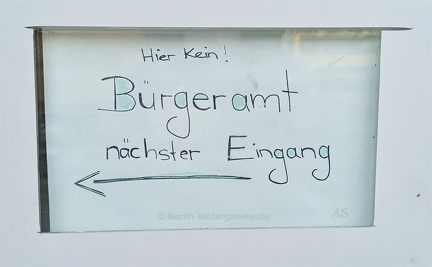 Hier Kein!
Bürgeramt
nächster Eingang
© Berlin-Bildergalerie.de
AS